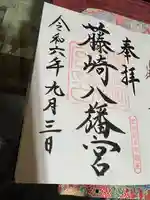 奉拝
藤崎八旛宮
令和六年九月三日